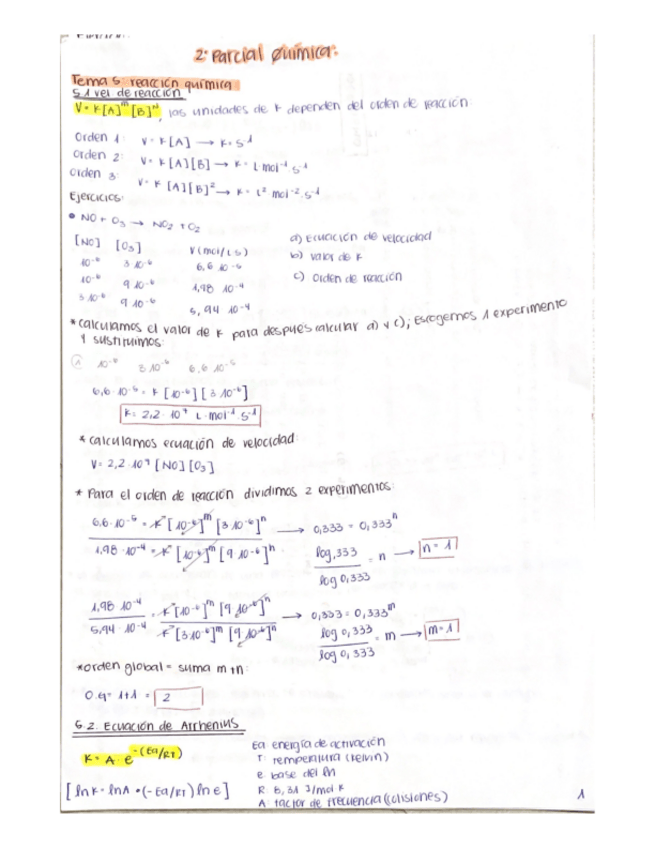 2º Parcial Química:
Tema 5 reacción química
5.1 Vel de reacción
V = K [A]^m [B]^n, las unidades de K dependen del orden de reacción.
Orden 1: V = K [A] → K = s^-1
Orden 2: V = K [A] [B] → K = L mol^-1 s^-1
Orden 3: V = K [A] [B]^2 → K = L^2 mol^-2 s^-1
Ejercicios:
• NO + O3 → NO2 + O2
[NO] [O3] V (mol/L s)
a) Ecuación de velocidad
10^-6 3·10^-6 6,6·10^-5
b) Valor de K
10^-6 9·10^-6 1,98·10^-4
c) Orden de reacción
3·10^-6 9·10^-6 5,94·10^-4
* Calculamos el valor de K para despues calcular a) y c); Escogemos 1 experimento
y sustituimos:
① 10^-6 3·10^-6 6,6·10^-5
6,6·10^-5 = K [10^-6] [3·10^-6]
K = 2,2·10^7 L·mol^-1 s^-1
* Calculamos ecuación de velocidad:
V = 2,2·10^7 [NO] [O3]
* Para el orden de reacción dividimos 2 experimentos:
6,6·10^-5 = K [10^-6]^m [3·10^-6]^n → 0,333 = 0,333^n
1,98·10^-4 = K [10^-6]^m [9·10^-6]^n
log,333 / log 0,333 = n → n = 1
1,98·10^-4 / 5,94·10^-4 = K [10^-6]^m [9·10^-6]^n / K [3·10^-6]^m [9·10^-6]^n → 0,333 = 0,333^m
log 0,333 / log 0,333 = m → m = 1
* orden global = suma m+n:
O.g = 1+1 = 2
5.2. Ecuación de Arrhenius
K = A · e^-(Ea/RT)
[ln K = ln A + (-Ea/RT) ln e]
Ea: energía de activación
T: temperatura (Kelvin)
e: base del ln
R: 8,31 J/mol K
A: factor de frecuencia (colisiones)
1